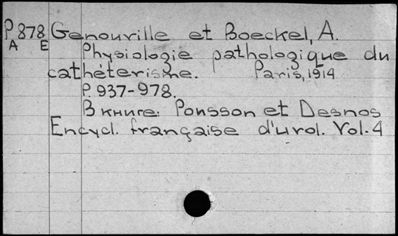 P.878 Genouville et Boeckel, A.
A E Physiologie pathologique du
cathétérisme. Paris, 1914
P. 937-978.
В книге: Ponsson et Desnos
Encycl. française d'urol. Vol. 4